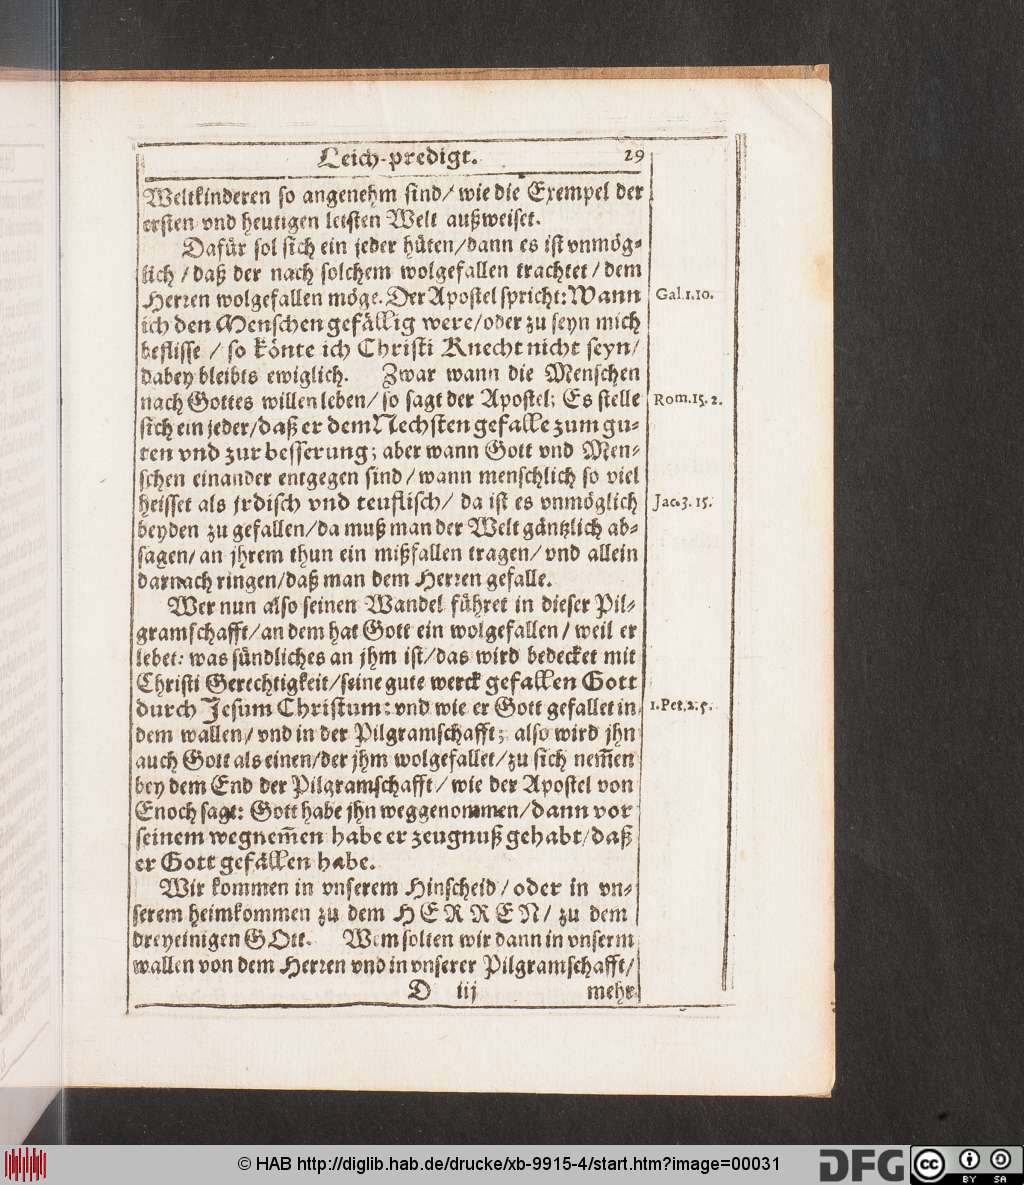 Leich-predigt. 29
Weltkinderen so angenehm sind/ wie die Exempel der
ersten vnd heutigen letsten Welt außweiset.
Dafür sol sich ein jeder hüten/dann es ist vnmög-
lich /daß der nach solchem wolgefallen trachtet/dem
Herren wolgefallen möge. Der Apostel spricht: Wann
Gal.1.10.
ich den Menschen gefällig were/oder zu seyn mich
beflisse / so könte ich Christi Knecht nicht seyn/
dabey bleibts ewiglich. Zwar wann die Menschen
nach Gottes willen leben/ so sagt der Apostel; Es stelle
Rom.15.2.
sich ein jeder/daß er dem Nechsten gefalle zum gu-
ten vnd zur besserung; aber wann Gott vnd Men-
schen einander entgegen sind/ wann menschlich so viel
heisset als jrdisch vnd teuflisch/ da ist es vnmöglich
Jac.3.15.
beyden zu gefallen/da muß man der Welt gäntzlich ab-
sagen/ an jhrem thun ein mißfallen tragen/ vnd allein
darnach ringen/daß man dem Herren gefalle.
Wer nun also seinen Wandel führet in dieser Pil-
gramschafft/an dem hat Gott ein wolgefallen/ weil er
lebet: was sündliches an jhm ist/das wird bedecket mit
Christi Gerechtigkeit/seine gute werck gefallen Gott
durch Jesum Christum: vnd wie er Gott gefallet in
1.Pet.2.5.
dem wallen/ vnd in der Pilgramschafft; also wird jhn
auch Gott als einen/der jhm wolgefallet/zu sich nem̃en
bey dem End der Pilgramschafft/ wie der Apostel von
Enoch sagt: Gott habe jhn weggenommen/dann vor
seinem wegnem̃en habe er zeugnuß gehabt/daß
er Gott gefällen habe.
Wir kommen in vnserem Hinscheid/oder in vn-
serem heimkommen zu dem HERREN/ zu dem
dreyeinigen GOtt. Wem solten wir dann in vnserm
wallen von dem Herren vnd in vnserer Pilgramschafft/
D iij mehr
© HAB http://diglib.hab.de/drucke/xb-9915-4/start.htm?image=00031
DFG
cc
BY SA